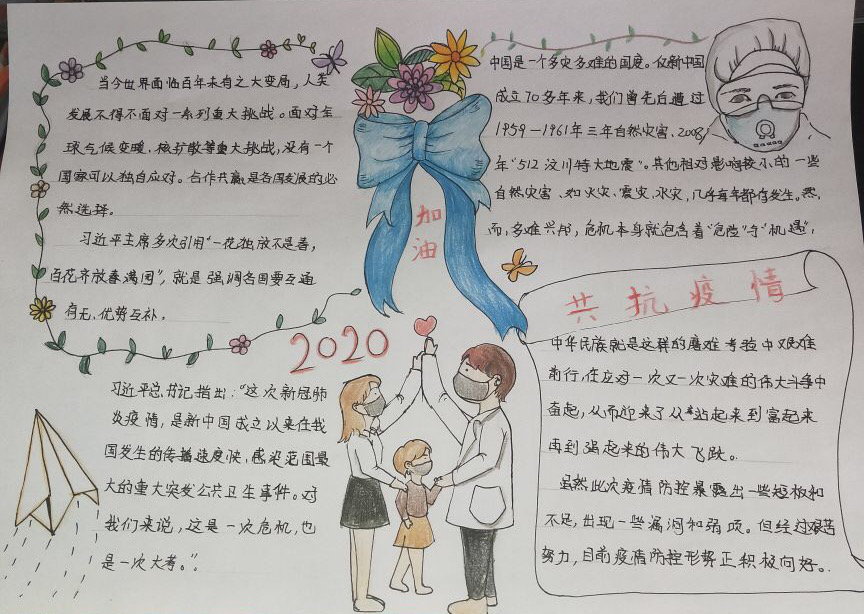 当今世界面临百年未有之大变局，人类
发展不得不面对一系列重大挑战。面对全
球气候变暖、核扩散等重大挑战，没有一个
国家可以独自应对。合作共赢是各国发展的必
然选择。
习近平主席多次引用“一花独放不是春，
百花齐放春满园”，就是强调各国要互通
有无、优势互补，
加
油
中国是一个多灾多难的国度。仅新中国
成立70多年来，我们曾先后遭过
1959－1961年三年自然灾害、2008
年“512汶川特大地震”。其他相对影响较小的一些
自然灾害、如火灾、震灾、水灾，几乎每年都有发生。然
而，多难兴邦，危机本身就包含着“危险”与“机遇”，
2020
习近平总书记指出：“这次新冠肺
炎疫情，是新中国成立以来在我
国发生的传播速度快，感染范围最
大的重大突发公共卫生事件。对
我们来说，这是一次危机，也
是一次大考。”。
共抗疫情
中华民族就是这样的磨难考验中艰难
前行，在应对一次又一次灾难的伟大斗争中
奋起，从而迎来了从站起来到富起来
再到强起来的伟大飞跃。
虽然此次疫情防控暴露出一些短板和
不足，出现一些漏洞和弱项。但经过艰苦
努力，目前疫情防控形势正积极向好。